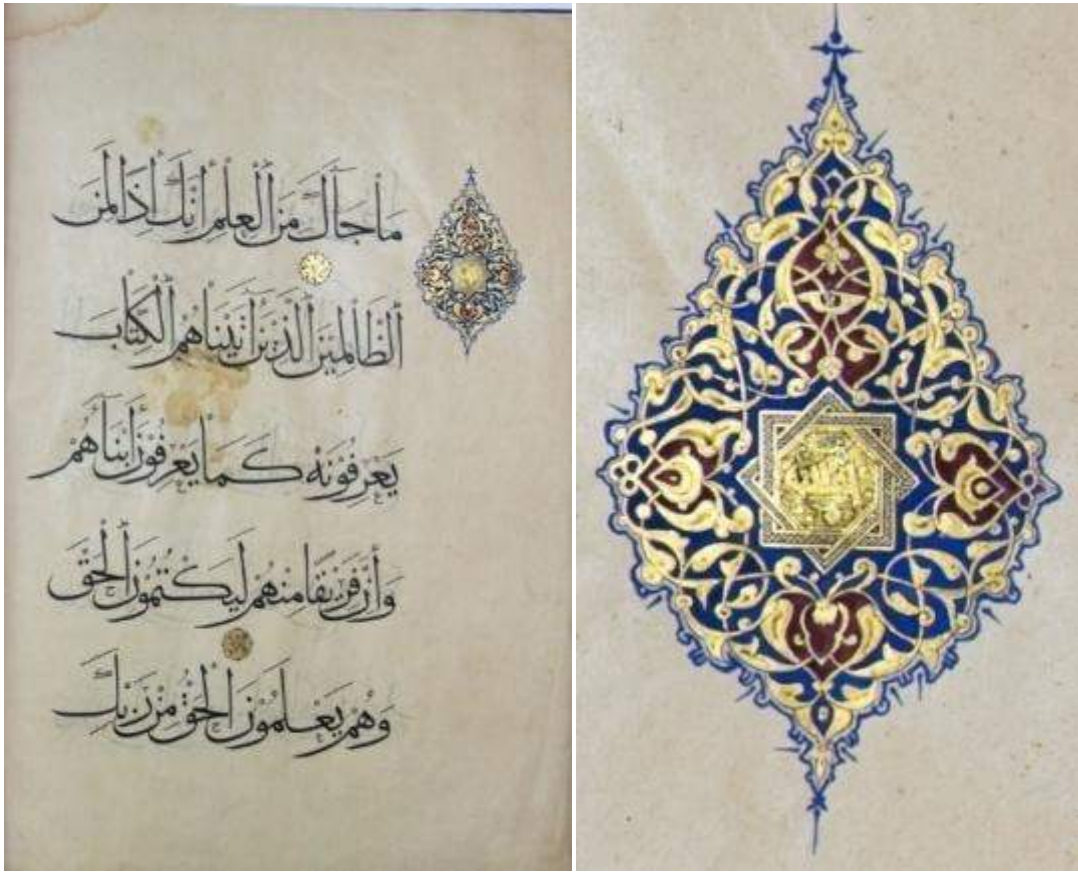 مَا جَاكَ مِنَ الْعِلْمِ اِنَّكَ اِذًا لَمِنَ
الظَّالِمِيَن الَّذْيِنَ اتَيْنَاهُمُ الْكِتَابَ
يَعْرِفُوْنَهُ كَمَا يَعْرِفُوْنَ اَبْنَاهُمْ
وَاَنَّ فَرِيْقًا مِنْهُمْ لَيَكْتُمُوْنَ الْحَقَّ
وَهُمْ يَعْلَمُوْنَ الْحَقُّ مِنْ رَبِّكَ